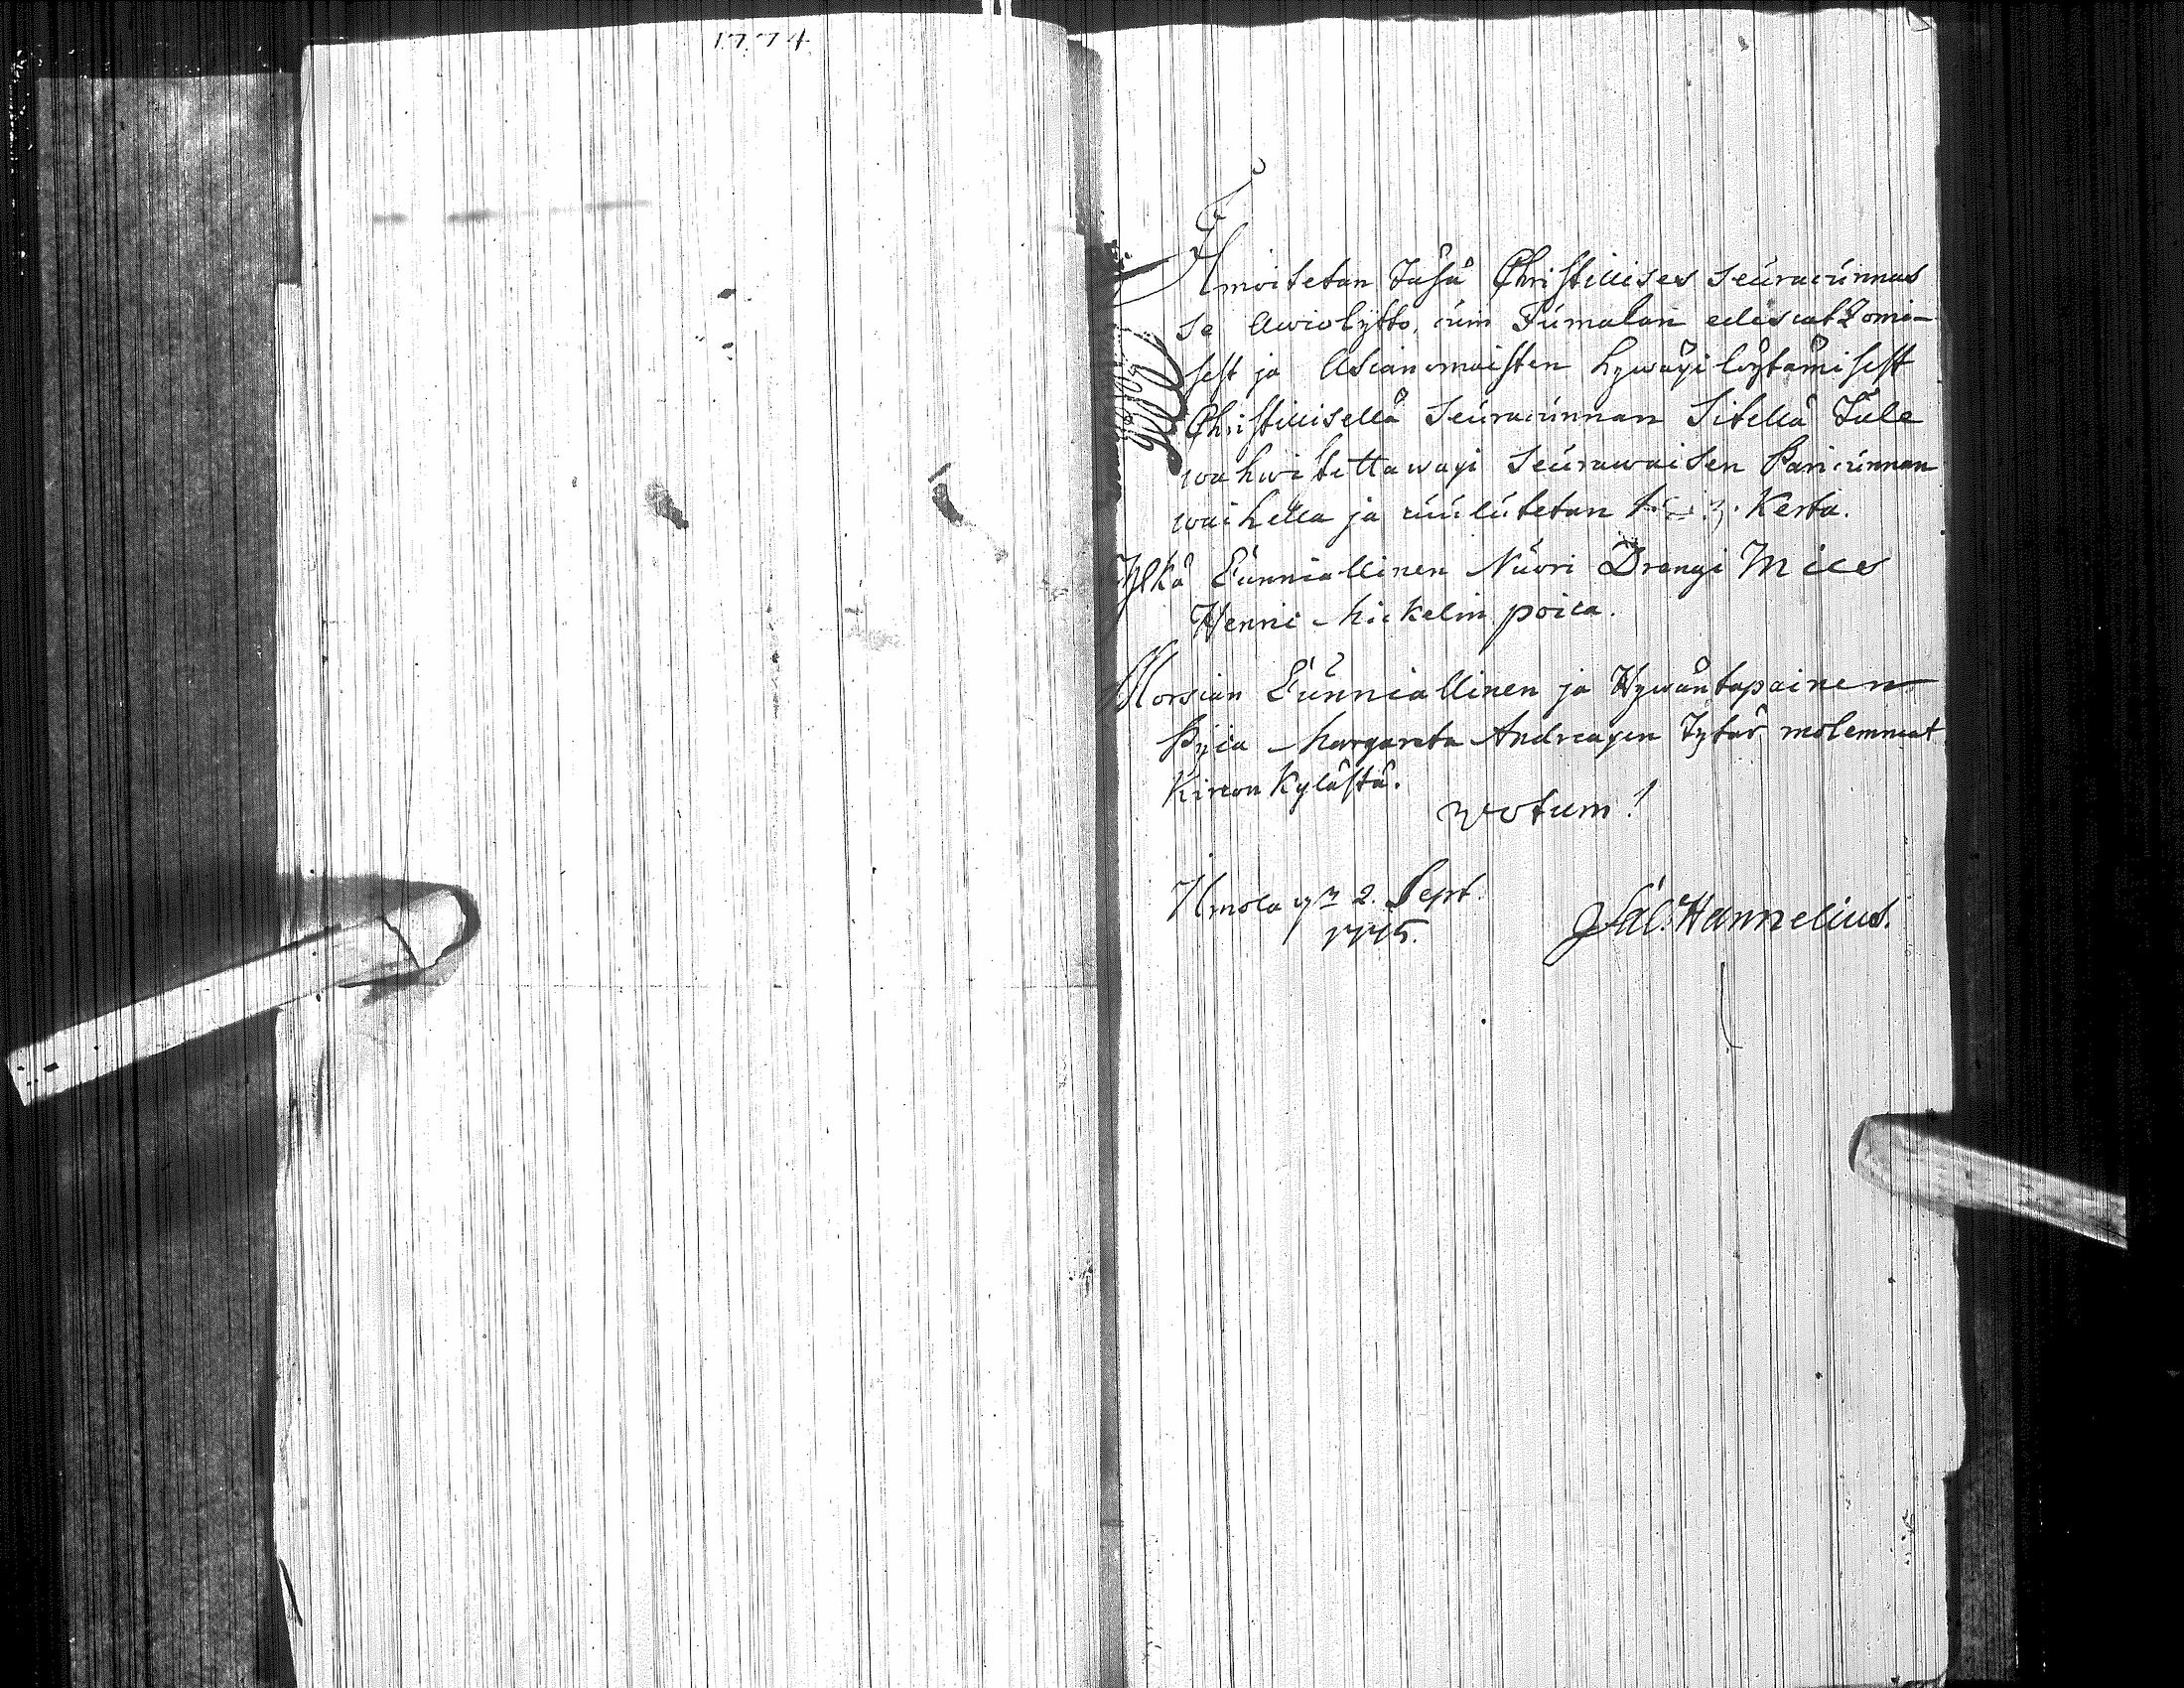 1774
Ilmoitetan Täsä Christillises Seuracunnas
se Awiolijtto, cuin Jumalan edescatzomi-
sest ja Asianomaisten hywäxi löytämisest
Christillisellä Seuracunnan Sitellä Tule
wahwistettawaxi Seurawaisen Paricunnan
waihella ja cuulutetan 3. Kerta.
Ylkä Cunniallinen Nuori Drengi Mies
Henric Michelin poica.
Morsian Cunniallinen ja Hywäntapainen
Pijca Margareta Andreaxen Tytär molemmat
Kylästä.
Votum!
Ilmola 2. Sept.
1775.
Sal. Hannelius.